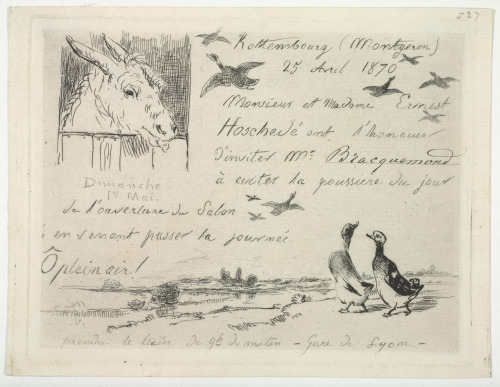 527
Rottembourg (Montgeron)
25 Avril 1870
Monsieur et Madame Ernest
Hoschedé ont l'honneur
d'inviter Mr. Bracquemond
à eviter la poussière du jour
Dimanche
1er Mai.
de l'ouverture du Salon
en venant passer la journée
Ô plein air!
prendre le train de 9h du matin - Gare de Lyon -